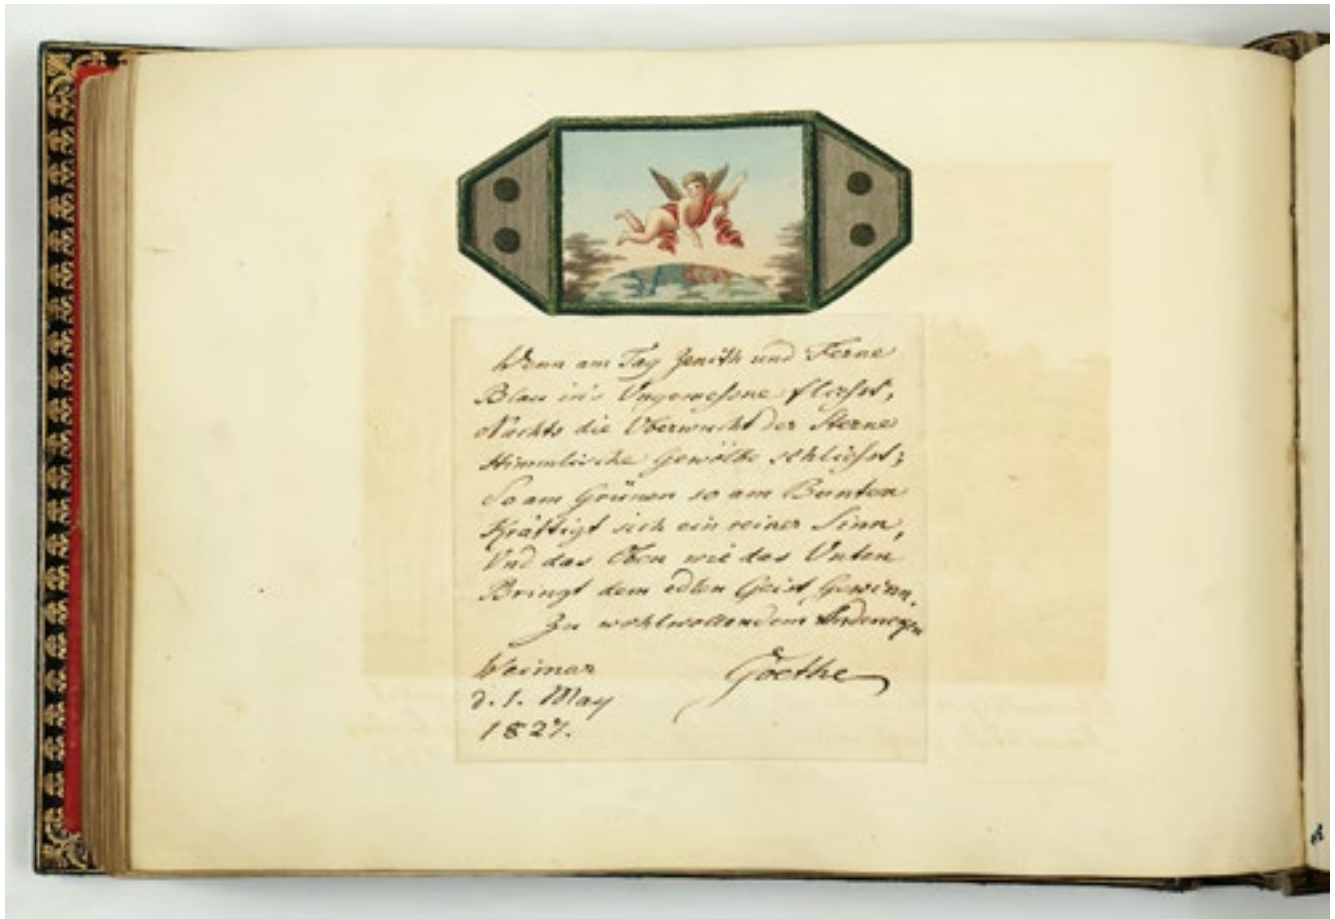 Wenn am Tag Zenith und Ferne
Blau in's Ungemeßne fließt,
Nachts die Überwucht der Sterne
Himmlische Gewölbe schließt;
So am Grünen so am Bunten
Kräftigt sich ein reiner Sinn,
Und das Oben wie das Unten
Bringt dem edlen Geist Gewinn.
Zu wohlwollendem Andenken
Weimar
d. 1. May
1827.
Goethe